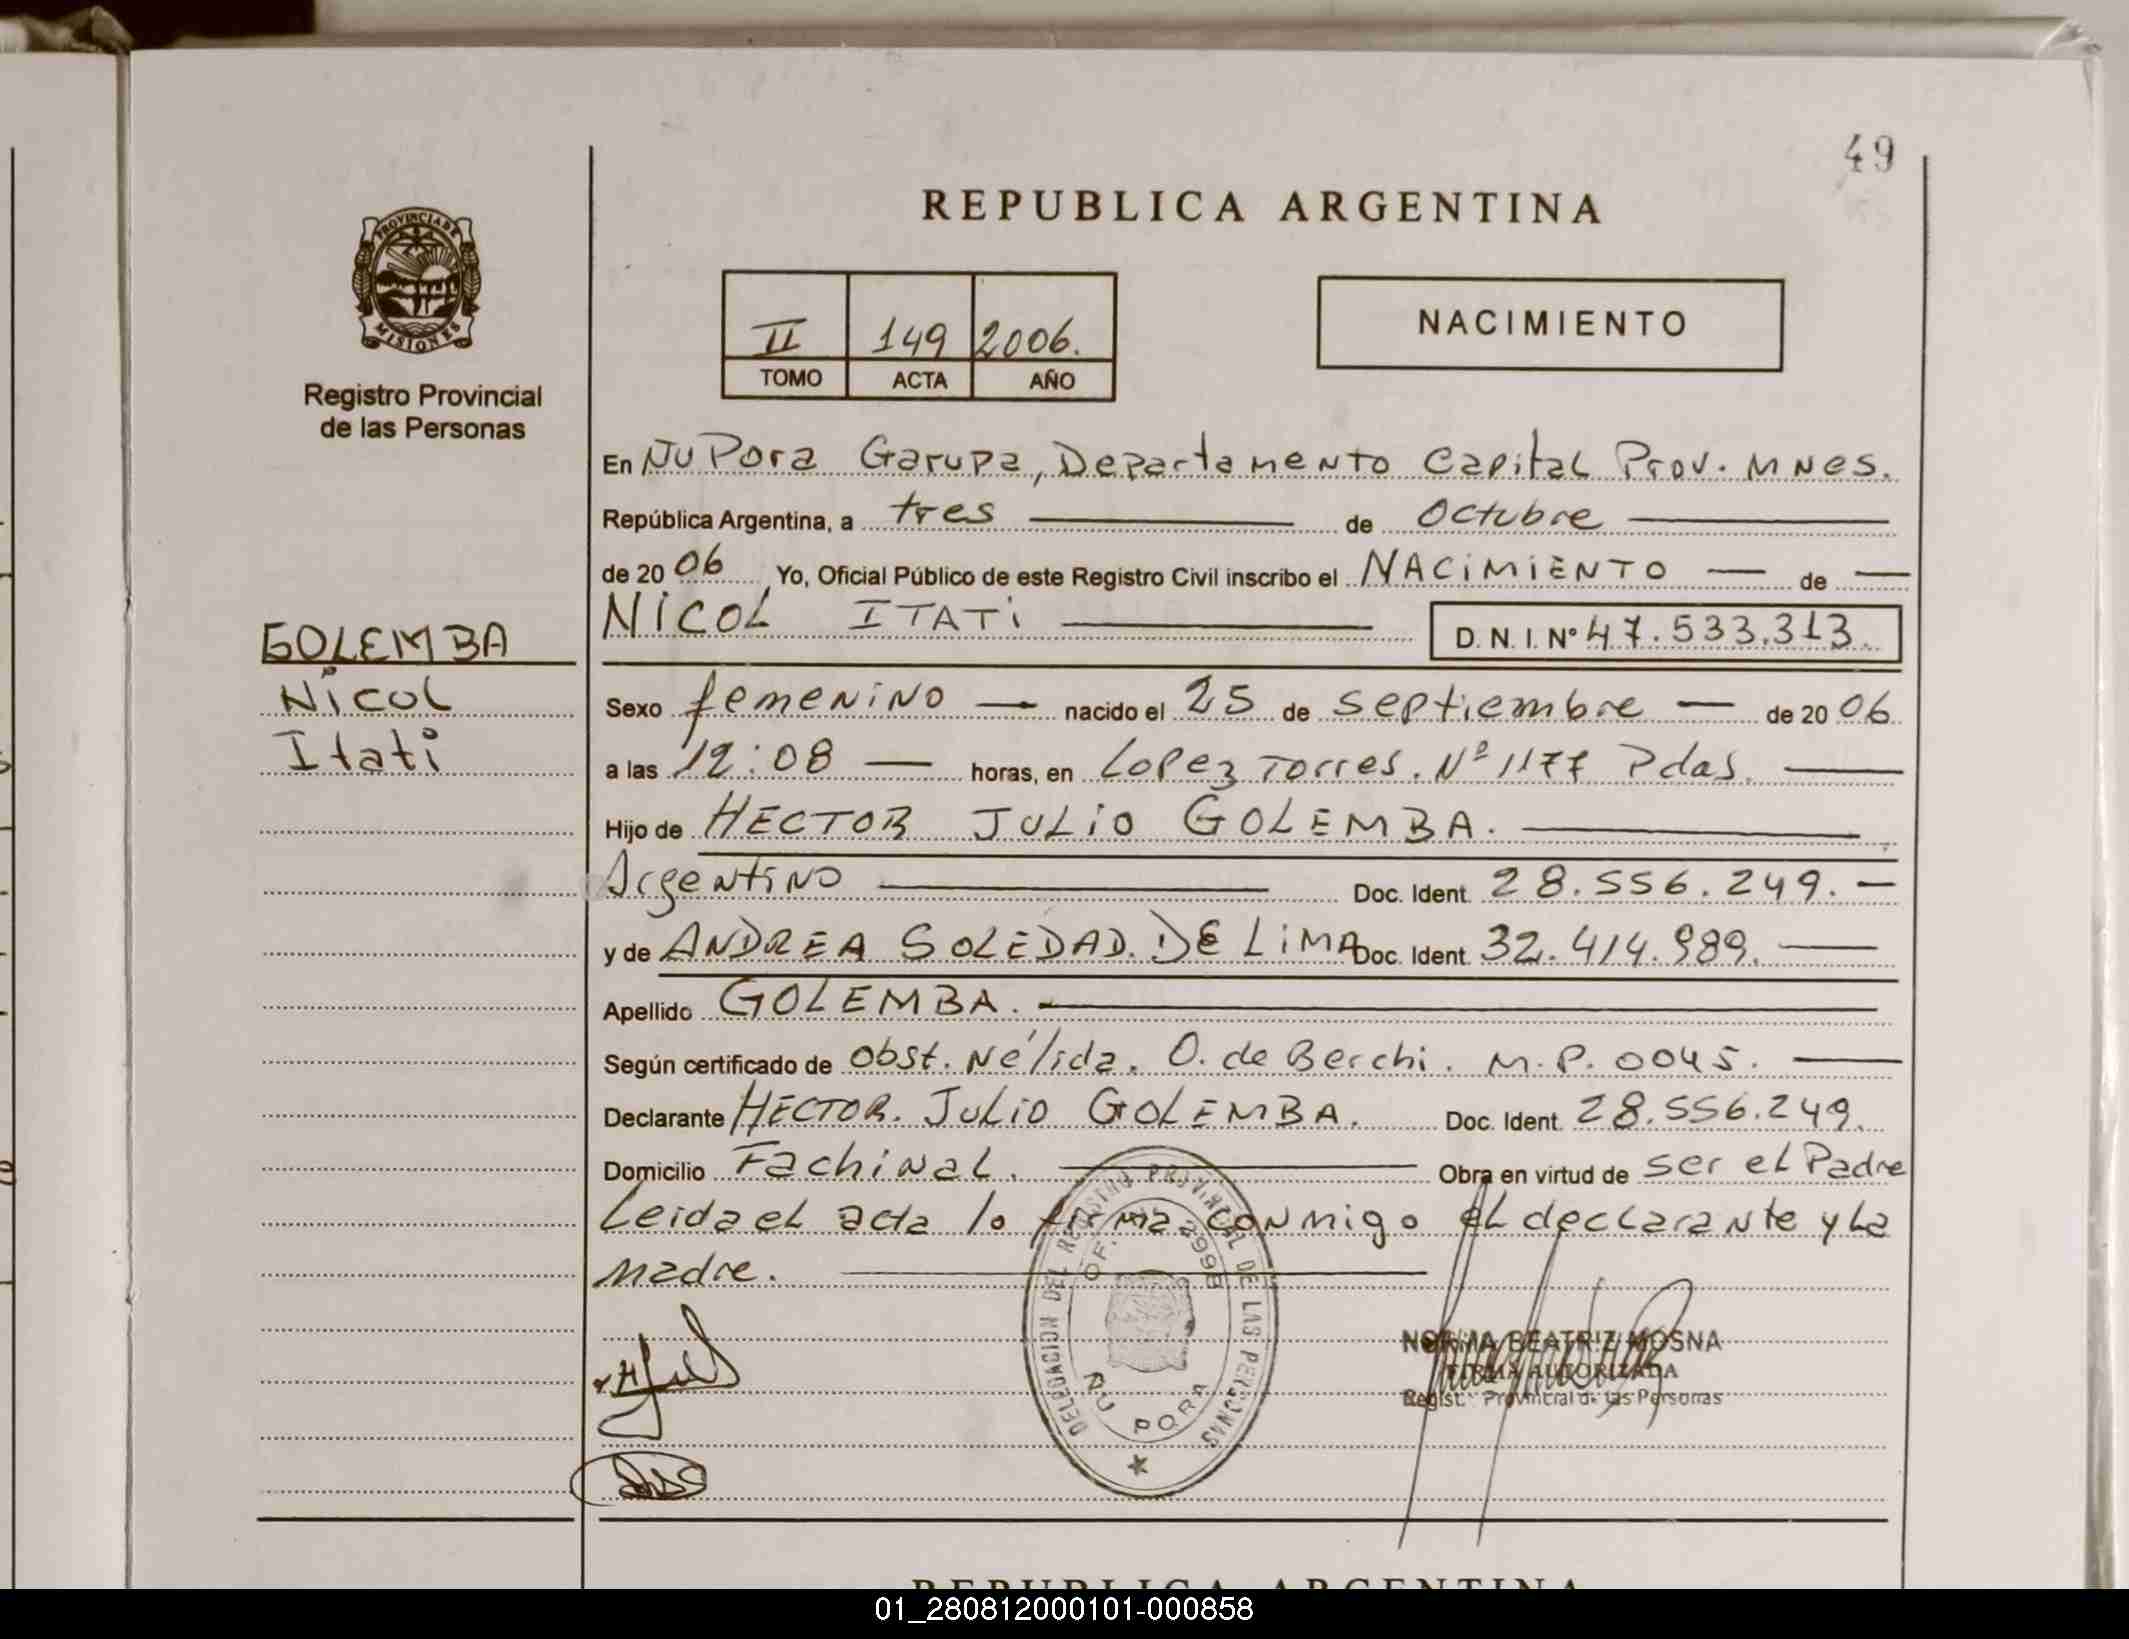 49
REPUBLICA ARGENTINA
PROVINCIA DE
MISIONES
Registro Provincial
de las Personas
II 149 2006.
TOMO ACTA AÑO
NACIMIENTO
En Ñu Pora Garupa, Departamento Capital Prov. Mnes.
República Argentina, a tres de Octubre
de 2006 Yo, Oficial Público de este Registro Civil inscribo el NACIMIENTO — de —
NICOL ITATI D. N. I. Nº 47.533.313.
GOLEMBA
Nicol
Itati
Sexo femenino — nacido el 25 de septiembre — de 2006
a las 12:08 — horas, en Lopez Torres. Nº 1177 Pdas.
Hijo de HECTOR JULIO GOLEMBA.
Argentino Doc. Ident. 28.556.249. —
y de ANDREA SOLEDAD. DE LIMA Doc. Ident. 32.414.989.
Apellido GOLEMBA.
Según certificado de Obst. Nélida. O. de Berchi. M.P. 0045.
Declarante HECTOR. JULIO GOLEMBA. Doc. Ident. 28.556.249.
Domicilio Fachinal. Obra en virtud de ser el Padre
Leida el acta lo firma conmigo el declarante y La
madre.
DELEGACION DEL REGISTRO PROVINCIAL DE LAS PERSONAS
ÑU PORA
NORMA BEATRIZ MOSNA
FIRMA AUTORIZADA
Regist. Provincial de las Personas
REPUBLICA ARGENTINA
01_280812000101-000858